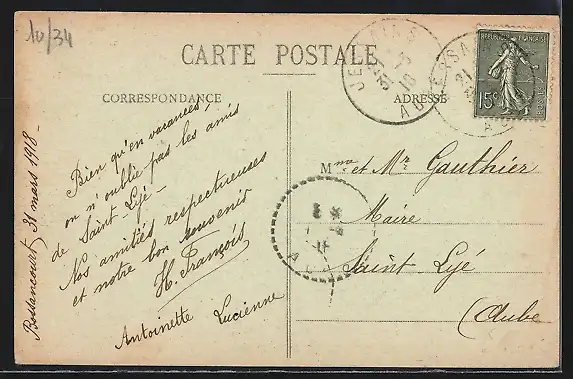 10/34
CARTE POSTALE
CORRESPONDANCE
Rossancourt, 31 mars 1918 -
Bien qu'en vacances,
on n'oublie pas les amis
de Saint-Lyé -
Nos amitiés respectueuses
et notre bon souvenir
H. François
Antoinette Lucienne
ADRESSE
Mme et Mr Gauthier
Maire
Saint Lyé
(Aube
REPUBLIQUE FRANÇAISE
15c
AUBE